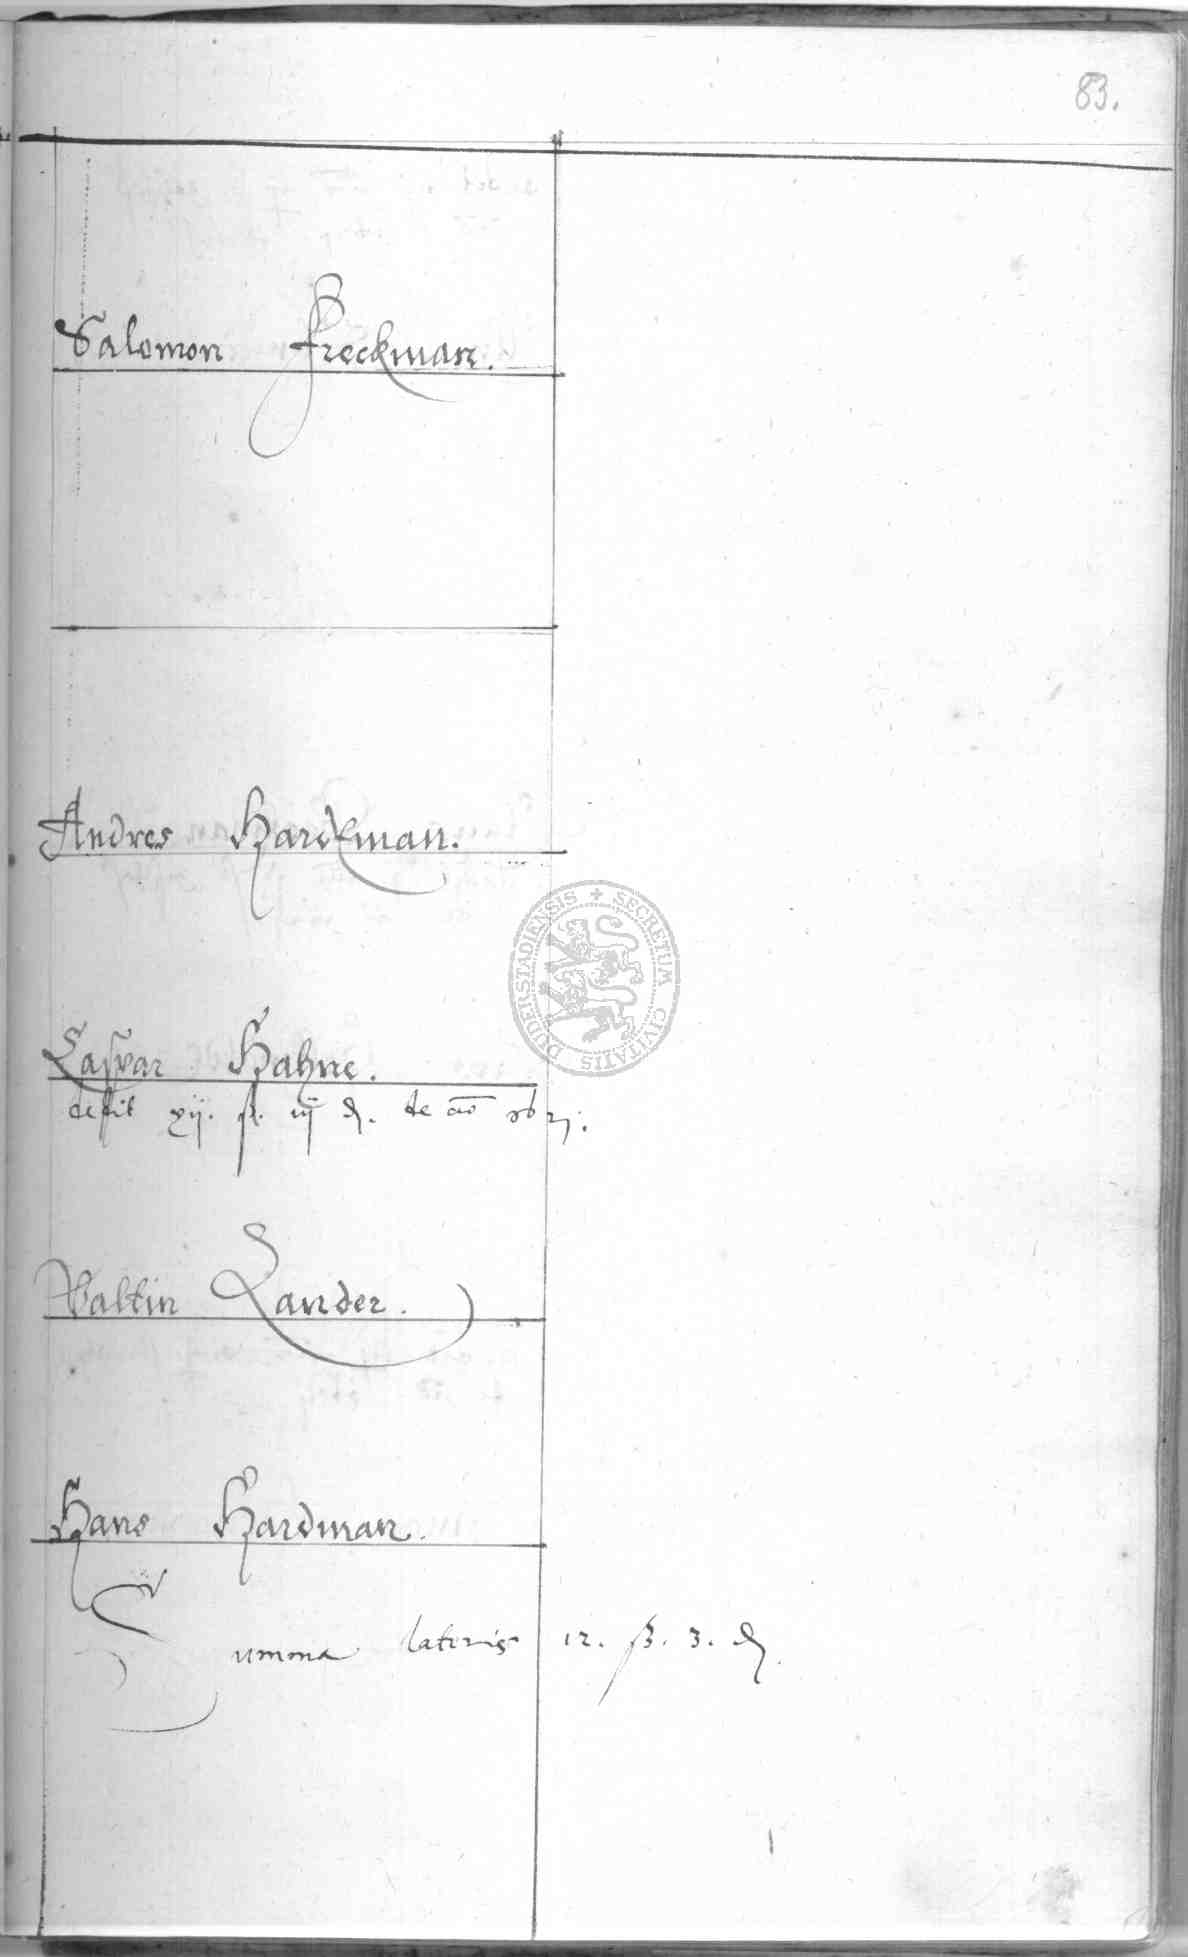 83.
Salomon Freckman.
Andres Harckman.
Caspar Hahne.
dedit xij. ß. iij ₰. de ao
Valtin Zander.
Hans Hardman.
Summa lateris 12. ß. 3. ₰
SECRETUM CIVITATIS DUDERSTADIENSIS